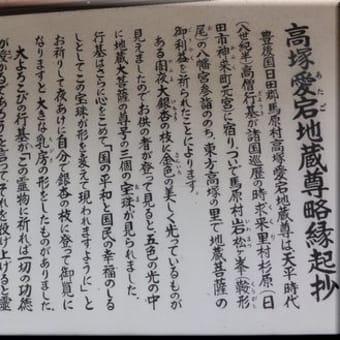 高塚愛宕地蔵尊略縁起抄
豊後国日田郡馬原村高塚愛宕地蔵尊は天平時代
(八世紀半)高僧行基が諸国巡歴の時求来里村杉原(日
田市神来町元宮)に宿りついで馬原村岩松ヶ峯(鞍形
尾)の八幡宮参詣ののち、東方高塚の里で地蔵菩薩の
御利益を祈られたことによります。
ある闇夜大銀杏の枝に金色の美しく光っているものが
見えましたのでお供の者が登って見ると五色の光の中
に地蔵大菩薩の尊号の三個の宝珠が見られました。
行基はさらに心をこめて、「国の平和と国民の幸福のしる
しとしてこの宝珠が形を変えて現われますように」と
お祈りして夜あけに自分で銀杏の枝に登って御覧に
なりますと大きな乳房の形をしたものがありました。
大よろこびの行基が「この霊物に祈れば一切の功徳